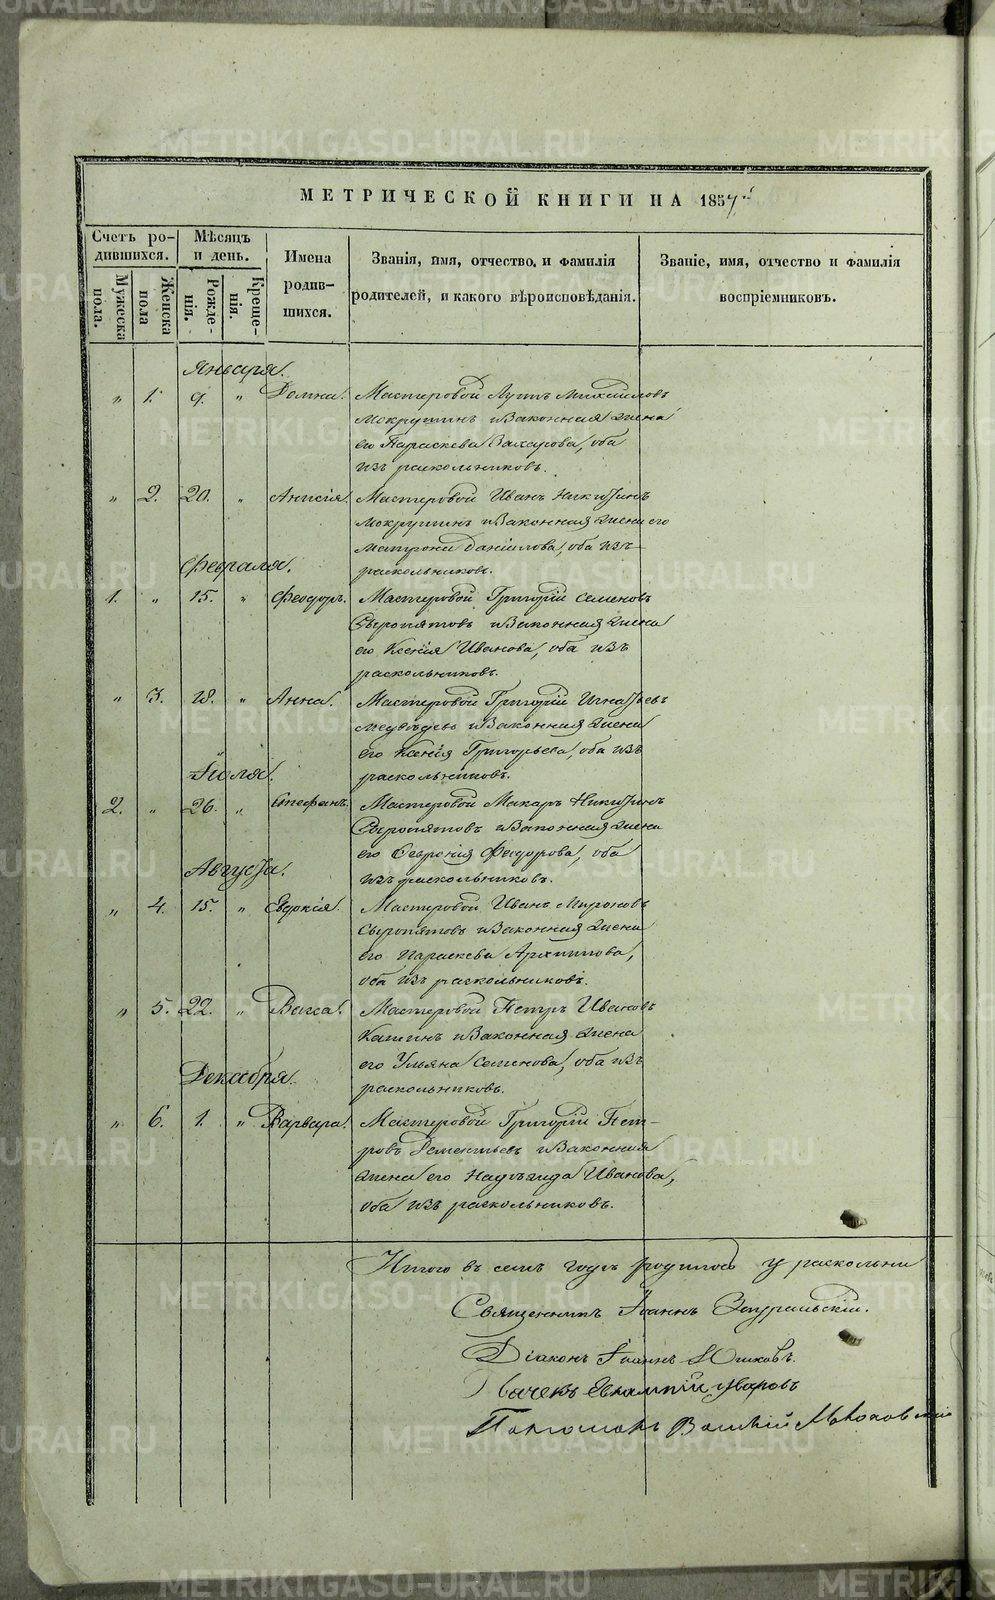 МЕТРИЧЕСКОЙ КНИГИ НА 1857й
Счетъ ро-
дившихся.
Мужеска
пола.
Женска
пола
Мѣсяцъ
и день.
Рожде-
нія.
Креще-
нія.
Имена
родив-
шихся.
Званія, имя, отчество, и фамилія
родителей, и какого вѣроисповѣданія.
Званіе, имя, отчество и фамилія
воспріемниковъ.
Января.
„ 1. 9. „ Домна. Мастеровой Лупъ Михайловъ
Мокрушинъ и законная жена
его Параскева Захарова, оба
изъ раскольниковъ.
„ 2. 20. „ Анисія. Мастеровой Иванъ Никитинъ
Мокрушинъ и законная жена его
Матрона Даніилова, оба изъ
раскольниковъ.
Февраля.
1. „ 15. „ Феодоръ. Мастеровой Григорій Семеновъ
Сыропятовъ и законная жена
его Ксенія Иванова, оба изъ
раскольниковъ.
„ 3. 18. „ Анна. Мастеровой Григорій Игнатьевъ
Медвѣдевъ и законная жена
его Ксенія Григорьева, оба изъ
раскольниковъ.
Іюля.
2. „ 26. „ Стефанъ. Мастеровой Макаръ Никитинъ
Сыропятовъ и законная жена
его Февронія Феодорова, оба
изъ раскольниковъ.
Августа.
„ 4. 15. „ Евдокія. Мастеровой Иванъ Мироновъ
Сыропятовъ и законная жена
его Параскева Архипова,
оба изъ раскольниковъ.
„ 5. 22. „ Васса. Мастеровой Петръ Ивановъ
Кашинъ и законная жена
его Ульяна Семенова, оба изъ
раскольниковъ.
Декабря.
„ 6. 1. „ Варвара. Мастеровой Григорій Пет-
ровъ Дементьевъ и законная
жена его Надежда Иванова,
оба изъ раскольниковъ.
Итого въ семъ годѣ родилось у раскольни
Священникъ Іоаннъ
Діаконъ Іоаннъ Юшковъ.
Дьячекъ Евлампій Уваровъ
Пономарь Василій
METRIKI.GASO-URAL.RU